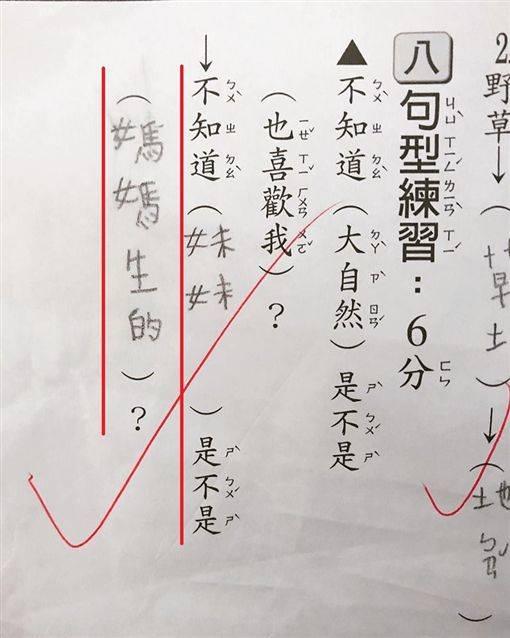 2.野草→(草土)→(地ㄅㄢ)
八 句型練習：6分
▲不知道(大自然)是不是
(也喜歡我)？
→不知道(妹妹)是不是
(媽媽生的)？